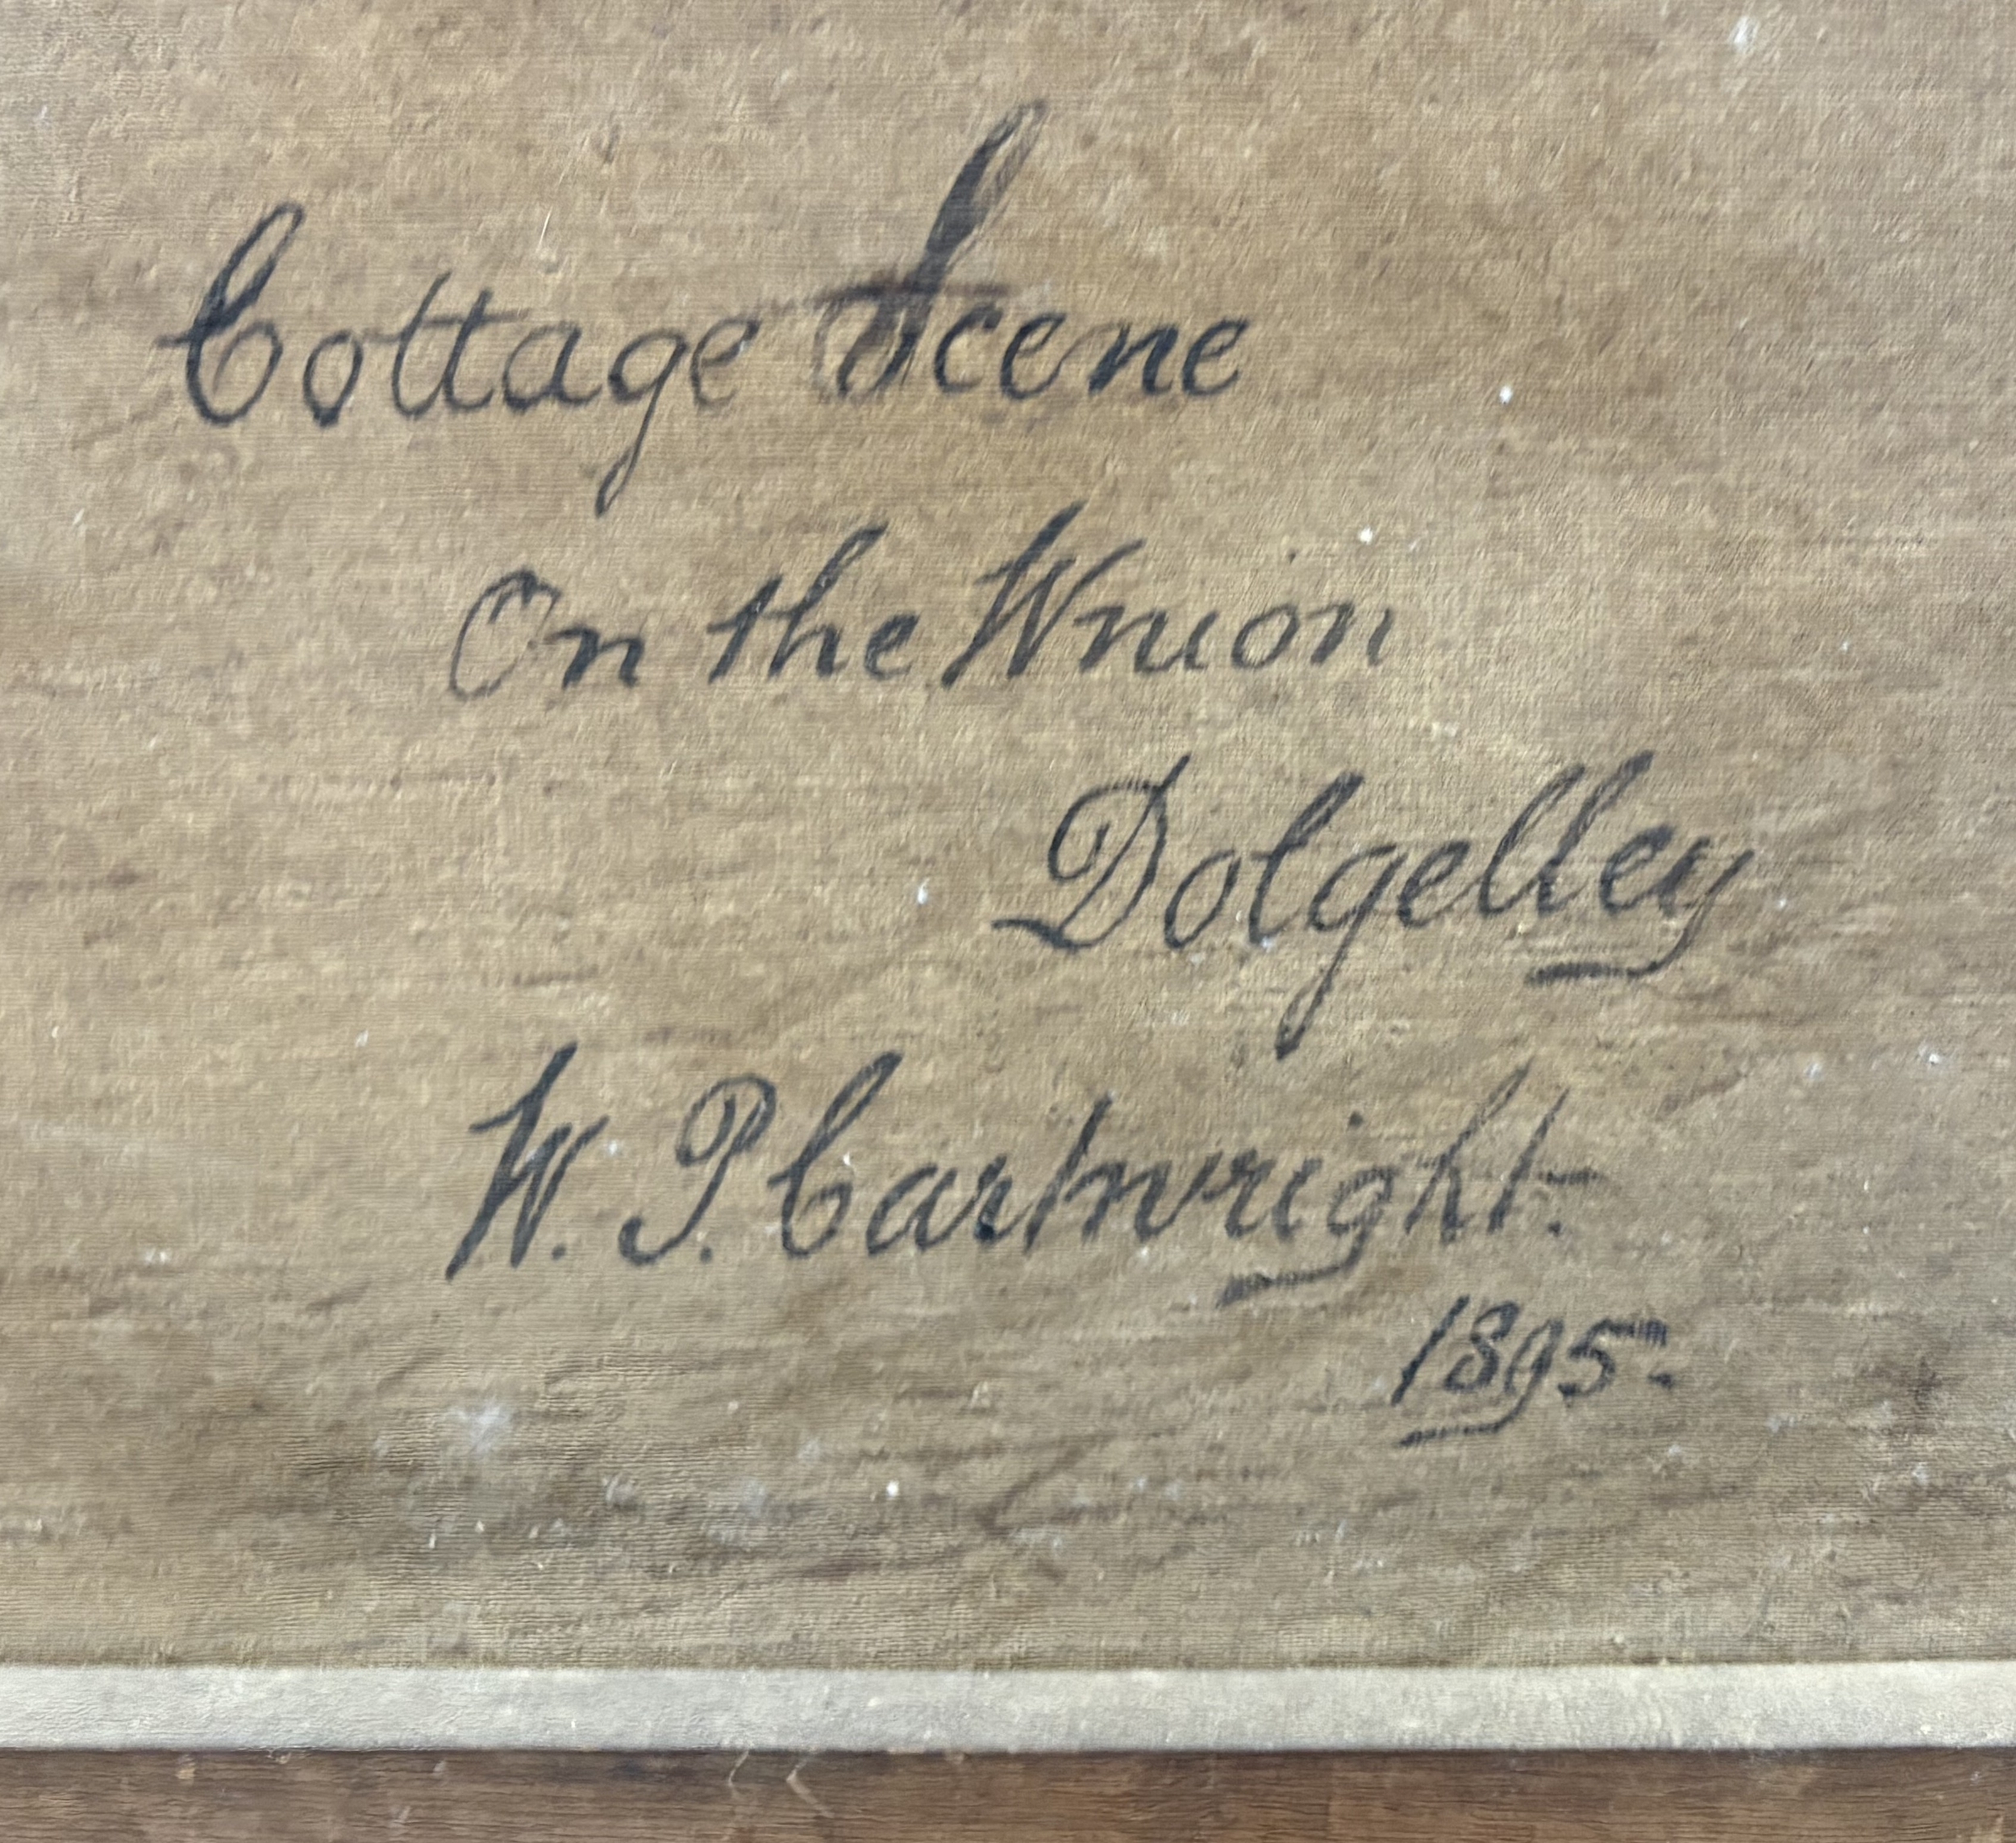 Cottage Scene
On the Wnion
Dolgelley
W. P. Cartwright.
1895.